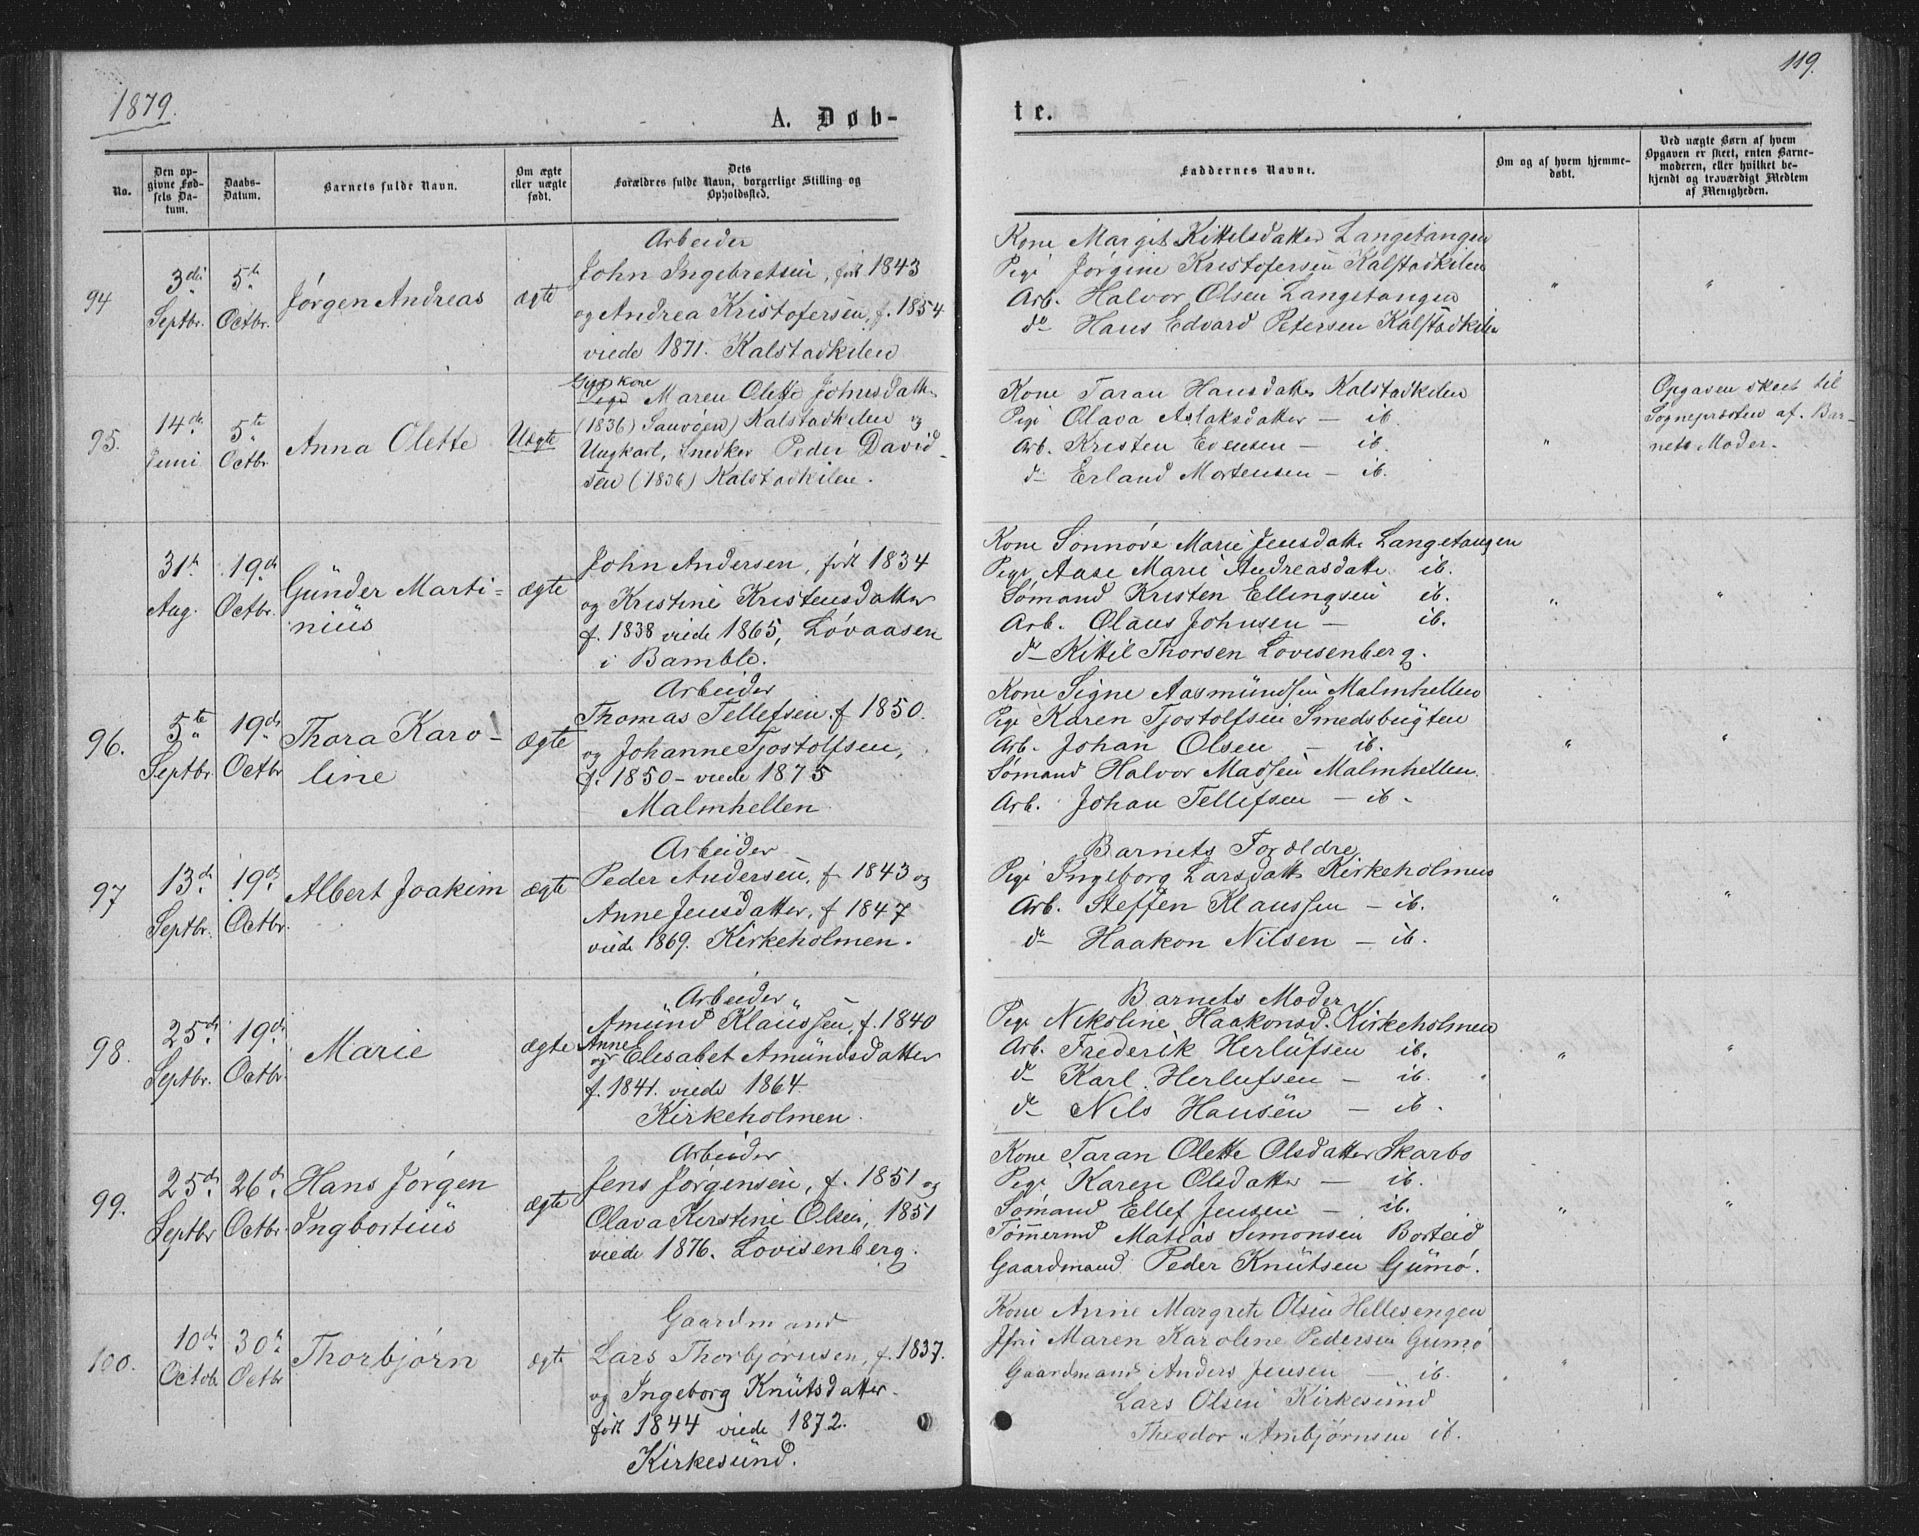 1879.
119.
A. Døb-
te.
No.
Den op-
givne Fød-
sels Da-
tum.
Daabs-
Datum.
Barnets fulde Navn.
Om ægte
eller uægte
født.
Dets
Forældres fulde Navn, borgerlige Stilling og
Opholdssted.
Faddernes Navne.
Om og af hvem hjemme-
døbt.
Ved uægte Børn af hvem
Opgaven er skeet, enten Barne-
moderen, eller hvilket be-
kjendt og troværdigt Medlem
af Menigheden.
94
3die
Septbr.
5te
Octbr.
Jørgen Andreas
ægte
Arbeider
John Ingebretsen, født 1843
og Andrea Kristofersen, f. 1854
viede 1871. Kalstadkilen
Kone Margit Kittelsdatter Langetangen
Pige Jørgine Kristofersen Kalstadkilen
Arb. Halvor Olsen Langetangen
do Hans Edvard Petersen Kalstadkilen
"
"
95.
14de
Juni
5te
Octbr
Anna Olette
Uægte
kone
Pige Maren Olette Johnsdatt.
(1836) Kalstadkilen og
Ungkarl, Snedker Peder David-
sen (1836) Kalstadkilen.
Kone Taran Hansdatter Kalstadkilen
Pige Olava Aslaksdatter — ib.
Arb. Kristen Evensen — ib.
do Erland Mortensen — ib.
"
Opgaven skeet til
Sognepræsten af Bar-
nets Moder.
31te
Aug.
19de
Octbr.
Günder Marti-
niüs
ægte
John Andersen, født 1834
og Kristine Kristensdatter
f. 1838 viede 1865, Løvaasen
i Bamble.
Kone Sønnøve Marie Jensdatter Langetangen
Pige Aase Marie Andreasdatter ib.
Sømand Kristen Ellingsen ib.
Arb. Olaus Johnsen — ib.
do Kittil Thorsen Lovisenberg.
"
"
96.
5te
Septbr.
19de
Octbr
Thora Karo-
line
ægte
Arbeider
Thomas Tellefsen f. 1850.
og Johanne Tjostolfsen,
f. 1850 - viede 1875
Malmhellen
Kone Signe Aasmündsen Malmhellen
Pige Karen Tjostolfsen Smedsbugten
Arb. Johan Olsen — ib.
Sømand Halvor Madsen Malmhellen.
Arb. Johan Tellefsen — ib.
"
"
97
13de
Septbr.
19de
Octbr.
Albert Joakim
ægte
Arbeider
Peder Andersen, f. 1843 og
Anne Jensdatter, f 1847
viede 1869. Kirkeholmen.
Barnets Forældre
Pige Ingeborg Larsdatter Kirkeholmen
Arb. Steffen Klaussen — ib.
do Haakon Nilsen — ib.
"
"
98.
25de
Septbr.
19de
Octbr.
Marie
ægte
Arbeider
Amünd Klaussen, f. 1840
Anne
og Elisabet Amündsdatter
f. 1841. viede 1864.
Kirkeholmen.
Barnets Moder
Pige Nikoline Haakonsd. Kirkeholmen
Arb. Frederik Herlüfsen ib.
do Karl Herlufsen — ib.
do Nils Hansen — ib.
"
"
99.
25de
Septbr
26de
Octbr.
Hans Jørgen
Ingbortiüs
ægte
Arbeider
Jens Jørgensen, f. 1851 og
Olava Kirstine Olsen, 1851
viede 1876. Lovisenberg.
Kone Taran Olette Olsdatter Skarbo
Pige Karen Olsdatter — ib.
Sømand Ellef Jensen — ib.
Tømmermd Matias Simonsen Borteid
Gaardmand Peder Knütsen Gümø.
"
100.
10de
Octob.
30te
Octbr
Thorbjørn
ægte
Gaardmand
Lars Thorbjørnsen, f. 1837.
og Ingeborg Knütsdatter.
født 1844 viede 1872.
Kirkesünd.
Kone Anne Margrete Olsen Hellesengen
Jfri Maren Karoline Pedersen Gumø
Gaardmand Anders Jensen — ib.
Lars Olsen Kirkesünd
Theodor Ambjørnsen ib.
"